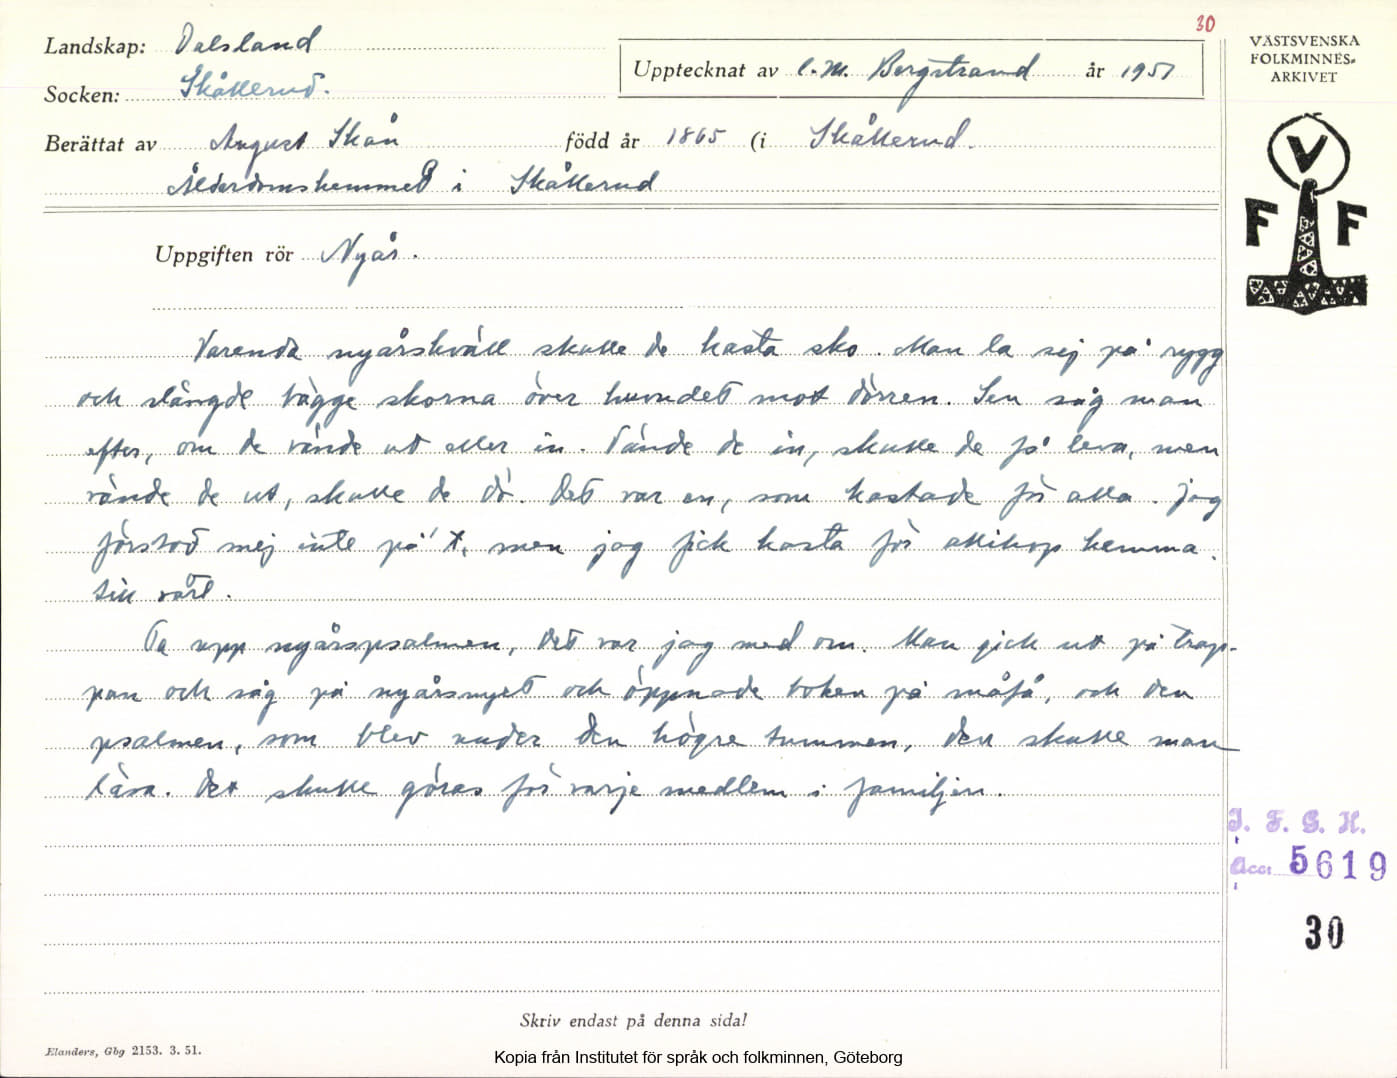 30
Landskap: Dalsland
Socken: Skållerud.
Upptecknat av C. M. Bergstrand år 1951
Berättat av August Skån född år 1865 (i Skållerud.
Ålderdomshemmet i Skållerud
Uppgiften rör Nyår.
Varenda nyårskväll skulle de kasta sko. Man la sej på rygg
och slängde bägge skorna över huvudet mot dörren. Sen såg man
efter, om de vände ut eller in. Vände de in, skulle de få leva, men
vände de ut, skulle de dö. Det var en, som kastade för alla. Jag
förstod mej inte på 't, men jag fick kasta för allihop hemma
till vårt.
Ta upp nyårspsalmen, det var jag med om. Man gick ut på trap-
pan och såg på nyårsnyet och öppnade boken på måfå, och den
psalmen, som blev under den högre tummen, den skulle man
läsa. Det skulle göras för varje medlem i familjen.
Skriv endast på denna sida!
Elanders, Gbg 2153. 3. 51.
Kopia från Institutet för språk och folkminnen, Göteborg
VÄSTSVENSKA
FOLKMINNES-
ARKIVET
V
F F
I. F. G. H.
Acc: 5619
30